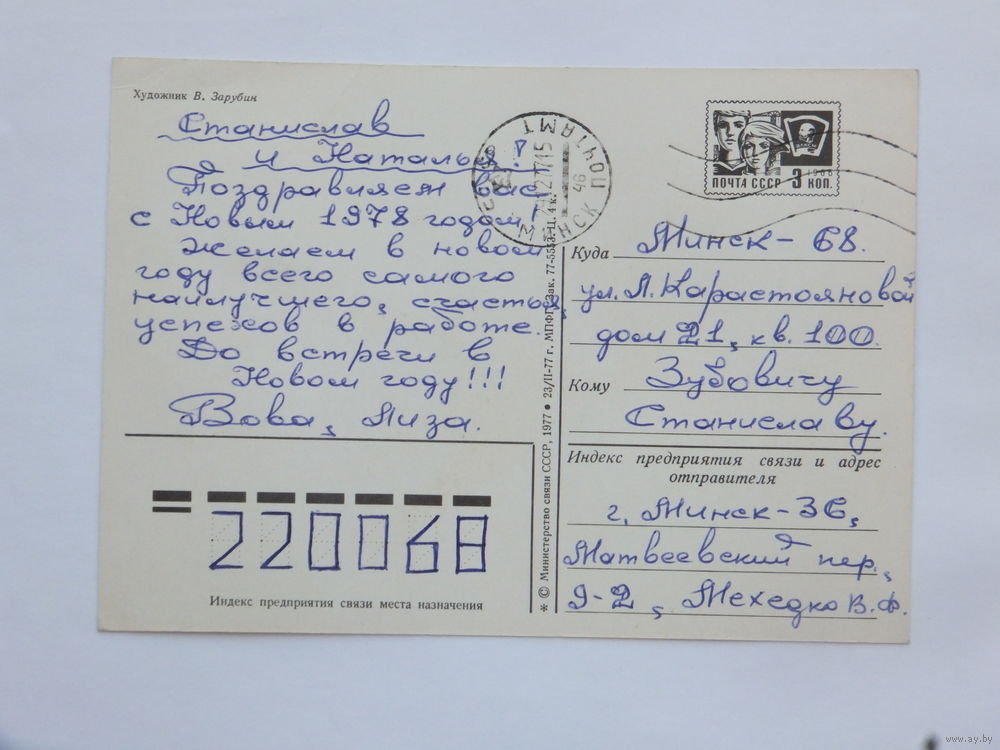 Художник В. Зарубин
Станислав
и Наталья!
Поздравляем вас
с Новым 1978 годом!
Желаем в новом
году всего самого
наилучшего, счастья,
успехов в работе.
До встречи в
Новом году!!!
Вова, Лиза.
220068
Индекс предприятия связи места назначения
* © Министерство связи СССР, 1977 • 23/II-77 г. МПФГ. Зак. 77-5553. Ц. 4 к.
МИНСК ПОЧТАМТ
ПОЧТА СССР 3 КОП.
1966
ВЛКСМ
Куда Минск - 68.
ул. Л. Карастояновой
дом 21, кв. 100.
Кому Зубовичу
Станиславу.
Индекс предприятия связи и адрес
отправителя
г. Минск - 36,
Матвеевский пер.,
9-2, Мехедко В. Ф.
www.ay.by